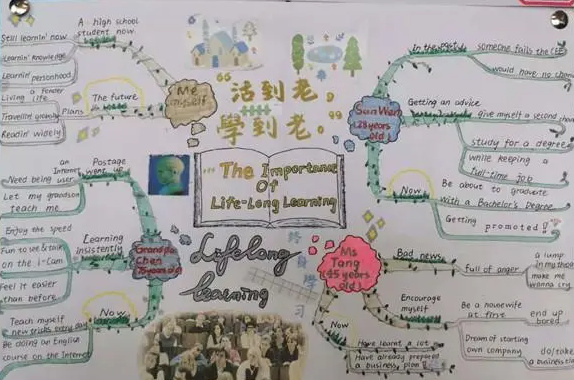 A high school
student now
Still learnin' now
Learnin' knowledge
Learnin' personhood
Me
myself
The future
Plans
Living a
life
Travellin'
Readin' widely
"活到老,
學到老。"
The Importance
Of
Life-Long Learning
Lifelong
learning
終身學習
In the past
someone fails the CEE
would have no chan
Sun Wen
(28 years
old)
Getting an advice
give myself a second chan
study for a degree
while keeping a
full-time job
Now
Be about to graduate
with a Bachelor's Degree
Getting promoted!
an
Internet
user
Postage
went up
Need being
Let my grandson
teach me
Grandpa
Chen
(75 years old)
Enjoy the speed
Fun to see & talk
on the i-Cam
Feel it easier
than before
Learning
insistently
Now
Teach myself
new tricks every day
Be doing an English
course on the Internet
Ms
Tang
(45 years
old)
Bad news
full of anger
a lump
in my throat
make me
wanna cry
Encourage
myself
Be a housewife
at first
end up
bored
Dream of starting
own company
do/take
a business
Now
Have learnt a lot
Have already prepared
a business plan